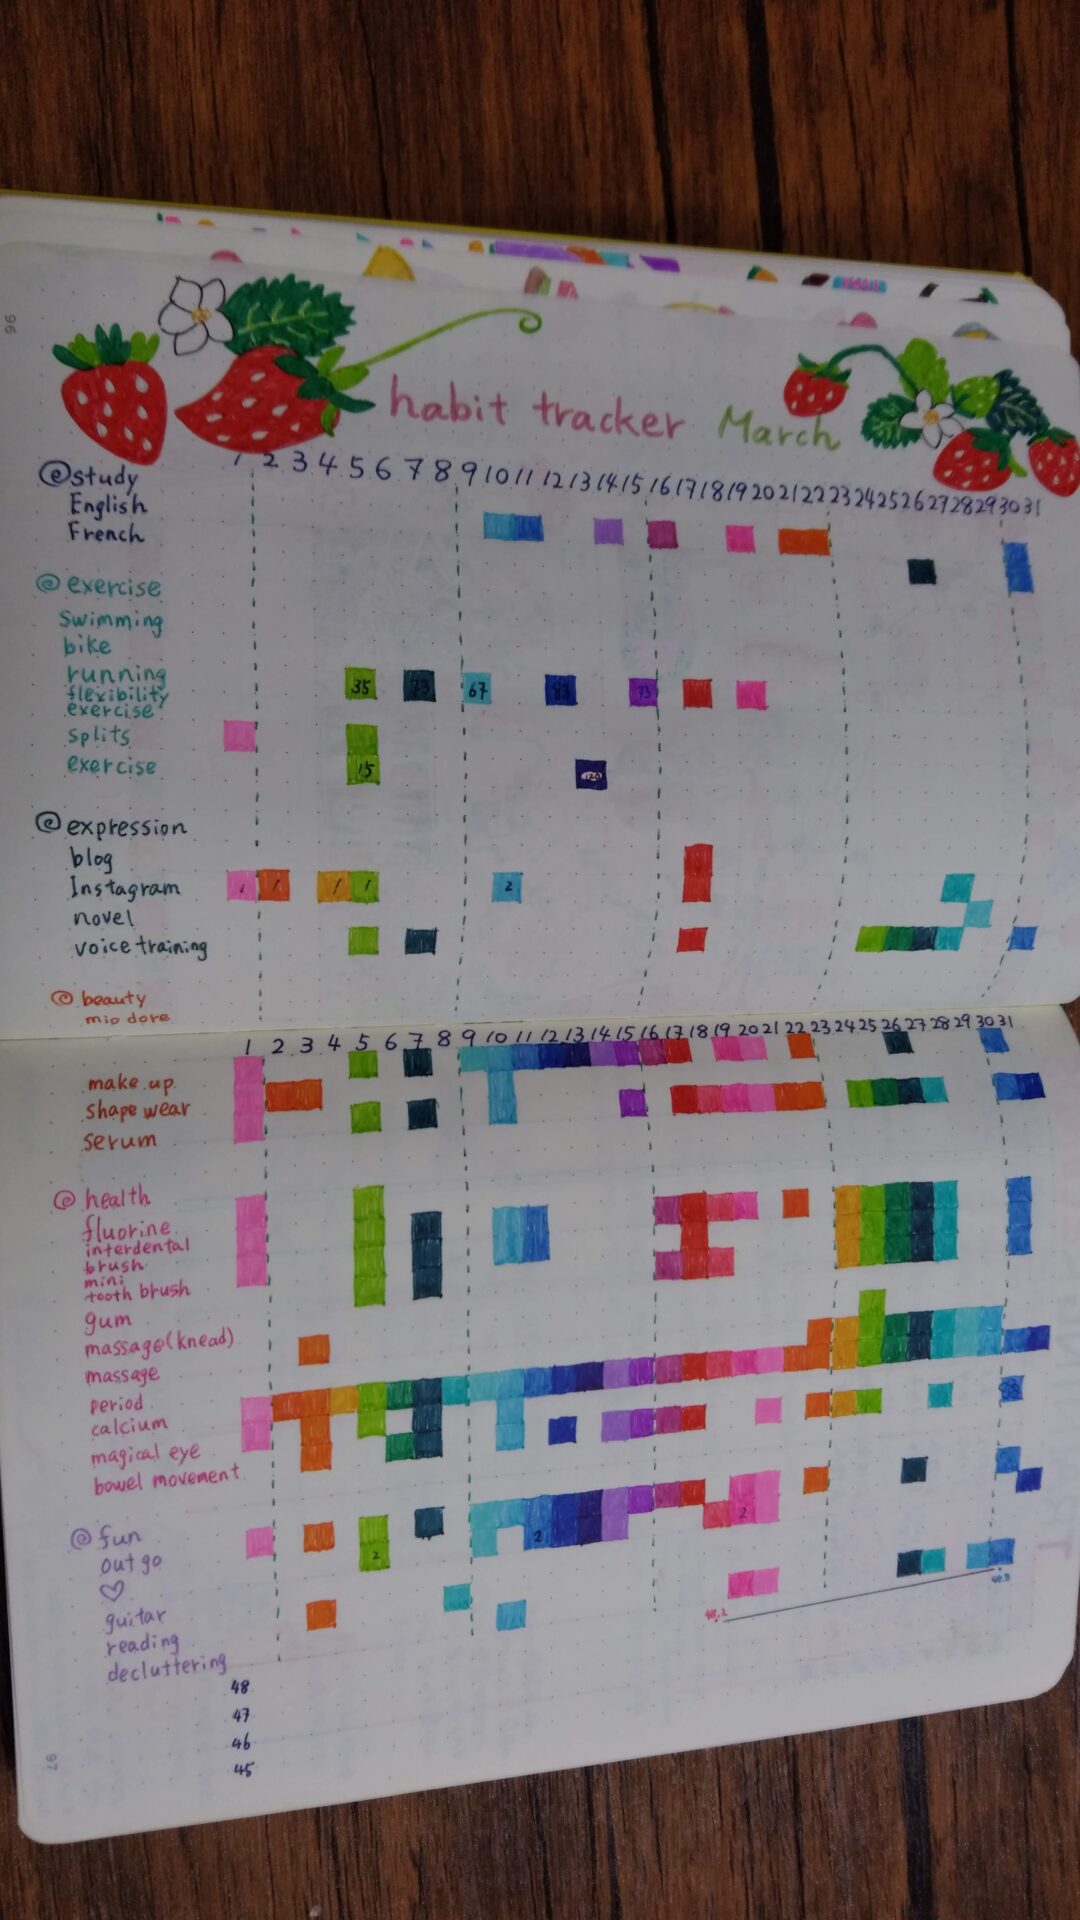 96
habit tracker March
1 2 3 4 5 6 7 8 9 10 11 12 13 14 15 16 17 18 19 20 21 22 23 24 25 26 27 28 29 30 31
@study
English
French
@ exercise
swimming
bike
running
35 73 67 83 73
flexibility
exercise
splits
exercise
15 120
@ expression
blog
Instagram
1 1 1 1 2
novel
voice training
@ beauty
mio dore
1 2 3 4 5 6 7 8 9 10 11 12 13 14 15 16 17 18 19 20 21 22 23 24 25 26 27 28 29 30 31
make up
shape wear
serum
@ health
fluorine
interdental
brush
mini
tooth brush
gum
massage (knead)
massage
period
calcium
magical eye
bowel movement
@ fun
out go
2 2 2
♡
guitar
reading
decluttering
48.2
48
47
46
45
97